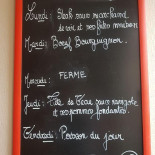 Lundi: Steak sauce marchand
de vin et ses frites maison
Mardi: Boeuf Bourguignon.
Mercredi: FERMÉ
Jeudi: Tête de Veau sauce ravigote
et ses pommes fondantes.
Vendredi: Poisson du jour